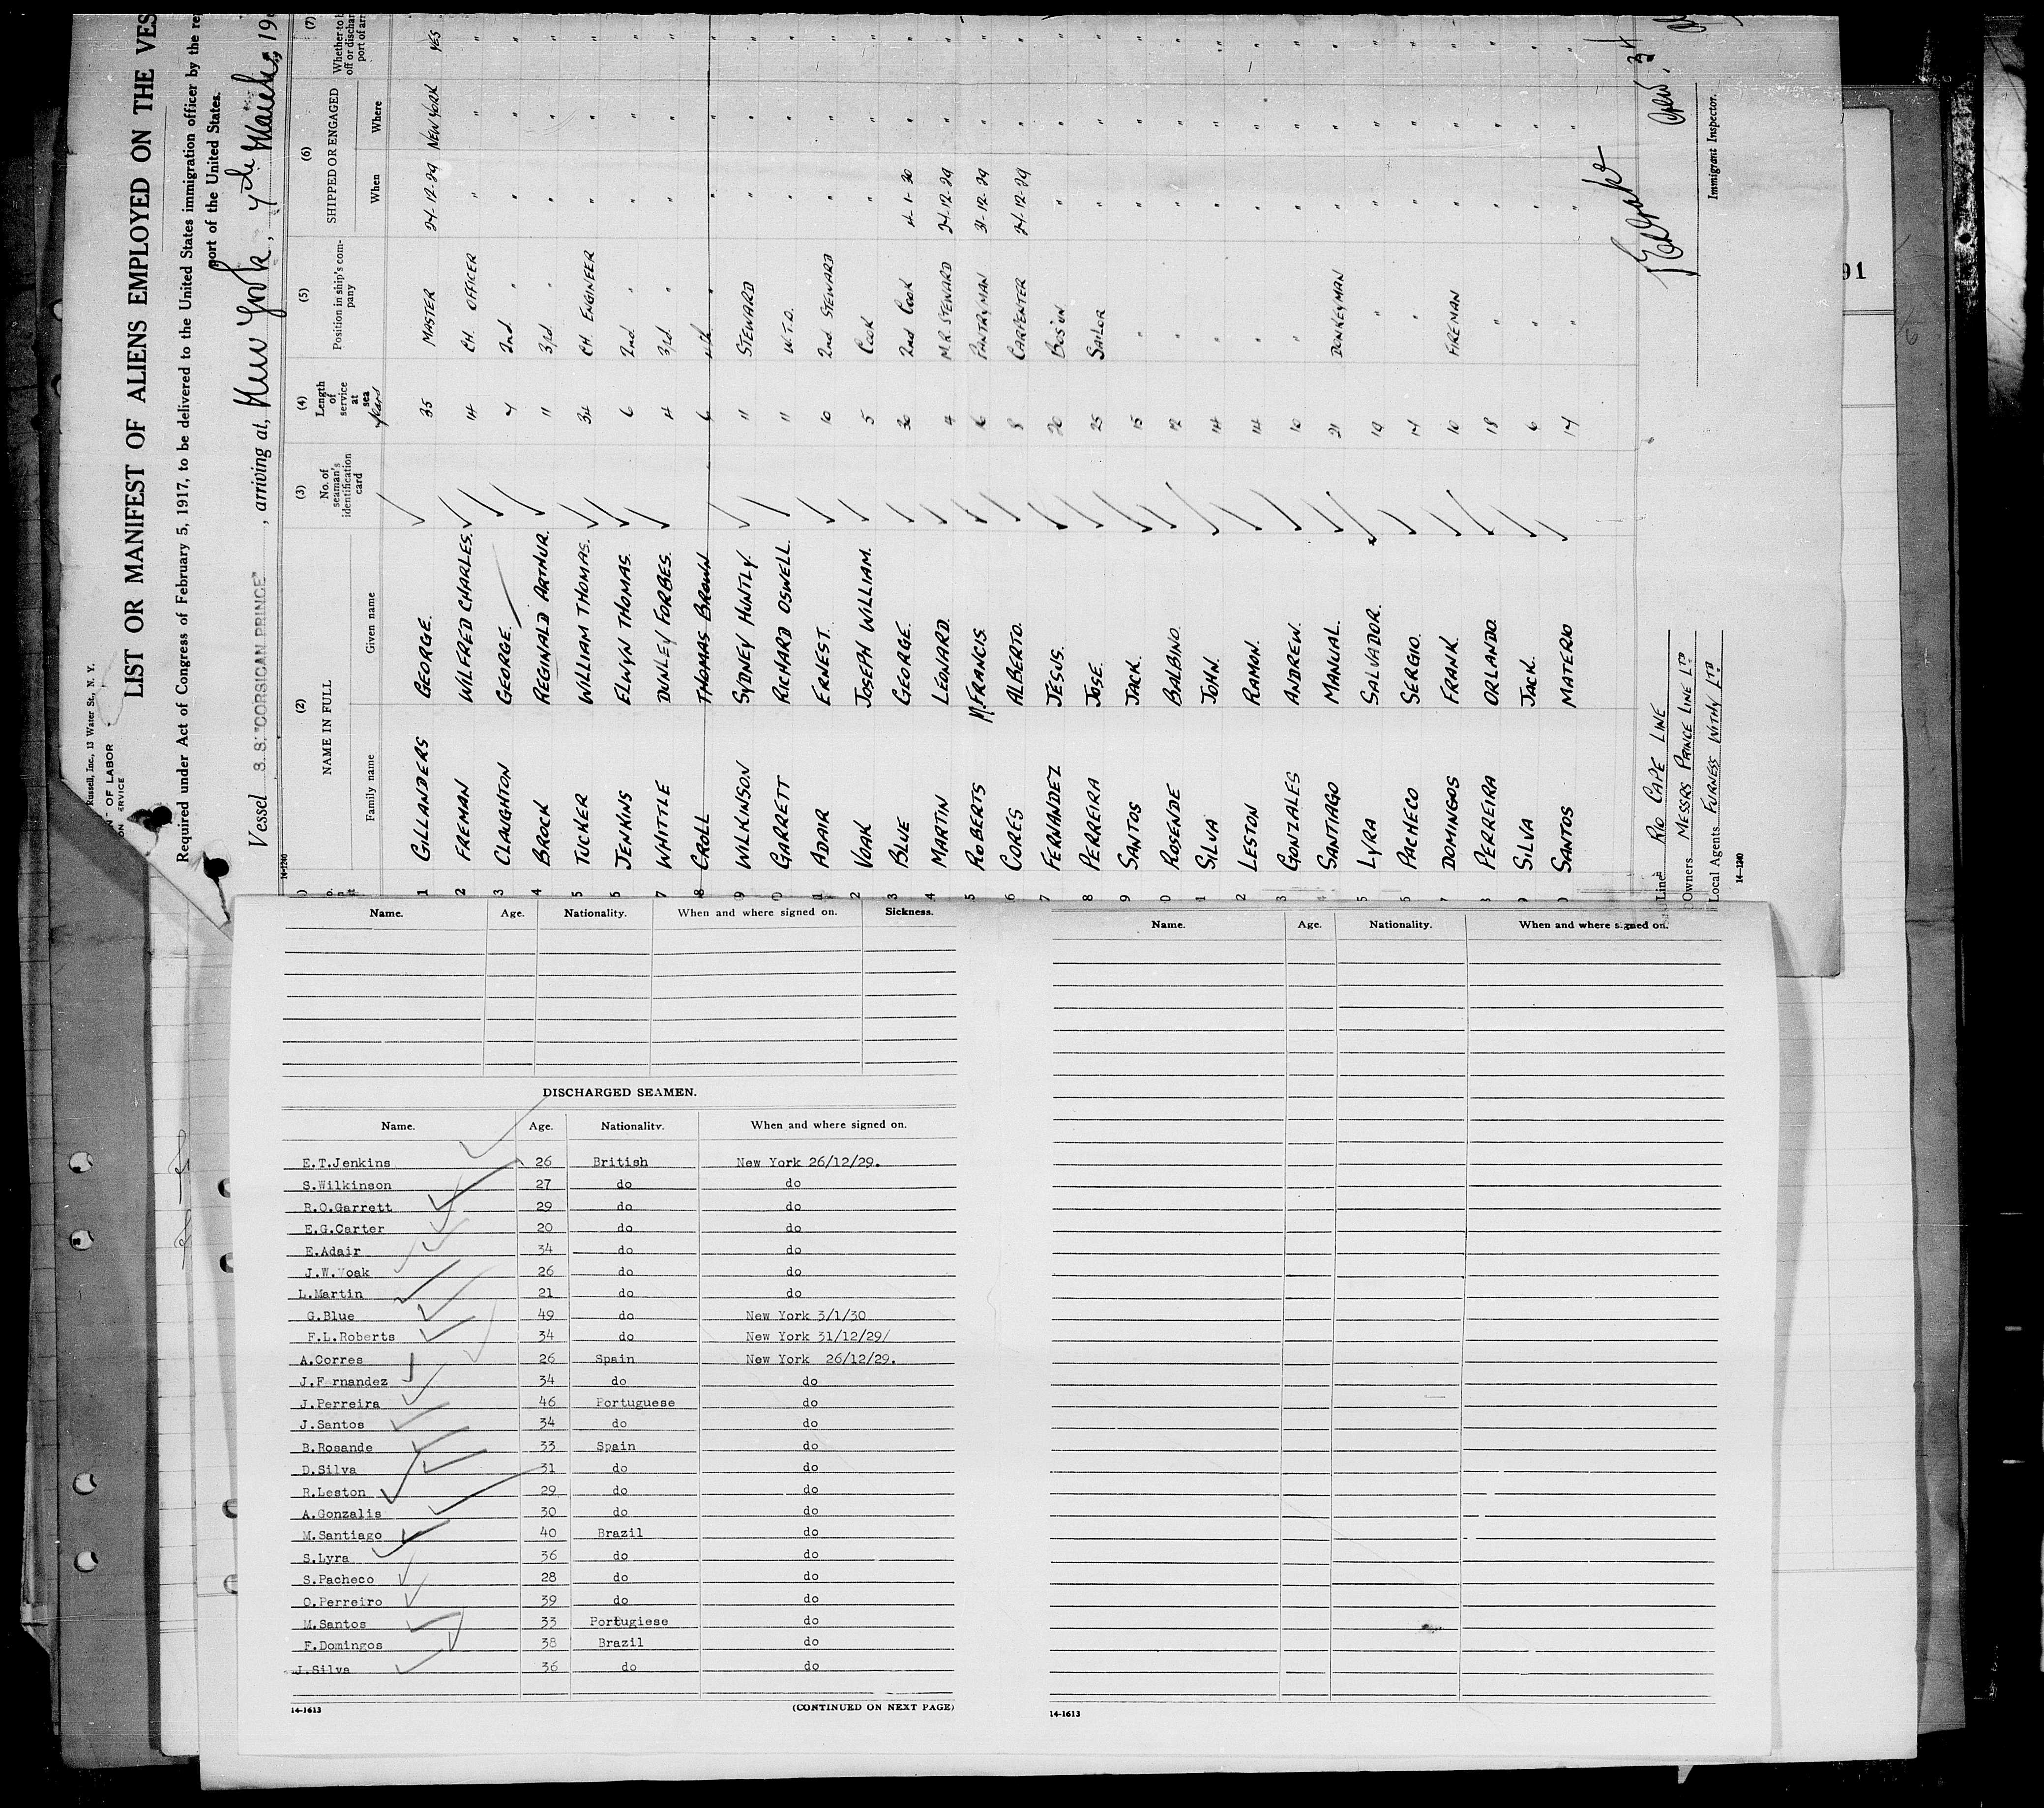 Russell, Inc., 13 Water St., N. Y.
OF LABOR
LIST OR MANIFEST OF ALIENS EMPLOYED ON THE VES
Required under Act of Congress of February 5, 1917, to be delivered to the United States immigration officer by the re
port of the United States.
Vessel S.S. "CORSICAN PRINCE", arriving at, New York, 7th March, 19
14-1240
(2) (3) (4) (5) (6) (7)
NAME IN FULL No. of seaman's identification card Length of service at sea Position in ship's company SHIPPED OR ENGAGED Whether to b
off or dischar
port of arr
Family name Given name years When Where
1 GILLANDERS GEORGE. 35 MASTER 24-12-29 NEW YORK YES
2 FREMAN WILFRED CHARLES. 14 CH. OFFICER " " "
3 CLAUGHTON GEORGE. 7 2nd " " " "
4 BROCK REGINALD ARTHUR. 11 3rd " " " "
5 TUCKER WILLIAM THOMAS. 34 CH. ENGINEER " " "
6 JENKINS ELWYN THOMAS. 6 2nd " " " "
7 WHITTLE DUNLEY FORBES. 4 3rd " " " "
8 CROLL THOMAS BROWN 6 4th " " " "
9 WILKINSON SYDNEY HUNTLY. 11 STEWARD " " "
0 GARRETT RICHARD OSWELL. 11 W.T.O. " " "
1 ADAIR ERNEST. 10 2nd STEWARD " " "
2 VOAK JOSEPH WILLIAM. 5 COOK " " "
3 BLUE GEORGE. 30 2nd COOK 4-1-30 " "
4 MARTIN LEONARD. 4 M.R. STEWARD 24-12-29 " "
5 ROBERTS M. FRANCIS. 6 PANTRYMAN 31-12-29 " "
6 CORES ALBERTO. 8 CARPENTER 24-12-29 " "
7 FERNANDEZ JESUS. 20 BOS'UN " " "
8 PERREIRA JOSE. 25 SAILOR " " "
9 SANTOS JACK. 15 " " " "
0 ROSENDE BALBINO. 12 " " " "
1 SILVA JOHN. 14 " " " "
2 LESTON RAMON. 14 " " " "
3 GONZALES ANDREW. 10 " " " "
4 SANTIAGO MANUAL. 21 DONKEYMAN " " "
5 LYRA SALVADOR. 19 " " " "
6 PACHECO SERGIO. 14 " " " "
7 DOMINGOS FRANK. 10 FIREMAN " " "
8 PERREIRA ORLANDO. 18 " " " "
9 SILVA JACK. 6 " " " "
0 SANTOS MATERIO 14 " " " "
Line RIO CAPE LINE
Owners MESSRS PRINCE LINE LTD
Local Agents FURNESS WITHY LTD
Immigrant Inspector.
14-1240
91
Name. Age. Nationality. When and where signed on. Sickness.
DISCHARGED SEAMEN.
Name. Age. Nationality. When and where signed on.
E.T.Jenkins 26 British New York 26/12/29.
S.Wilkinson 27 do do
R.O.Garrett 29 do do
E.G.Carter 20 do do
E.Adair 34 do do
J.W.Voak 26 do do
L.Martin 21 do do
G.Blue 49 do New York 3/1/30
F.L.Roberts 34 do New York 31/12/29/
A.Corres 26 Spain New York 26/12/29.
J.F rnandez 34 do do
J.Perreira 46 Portuguese do
J.Santos 34 do do
B.Rosande 33 Spain do
D.Silva 31 do do
R.Leston 29 do do
A.Gonzalis 30 do do
M.Santiago 40 Brazil do
S.Lyra 36 do do
S.Pacheco 28 do do
O.Perreiro 39 do do
M.Santos 33 Portugiese do
F.Domingos 38 Brazil do
J.Silva 36 do do
14-1613 (CONTINUED ON NEXT PAGE)
Name. Age. Nationality. When and where signed on.
14-1613